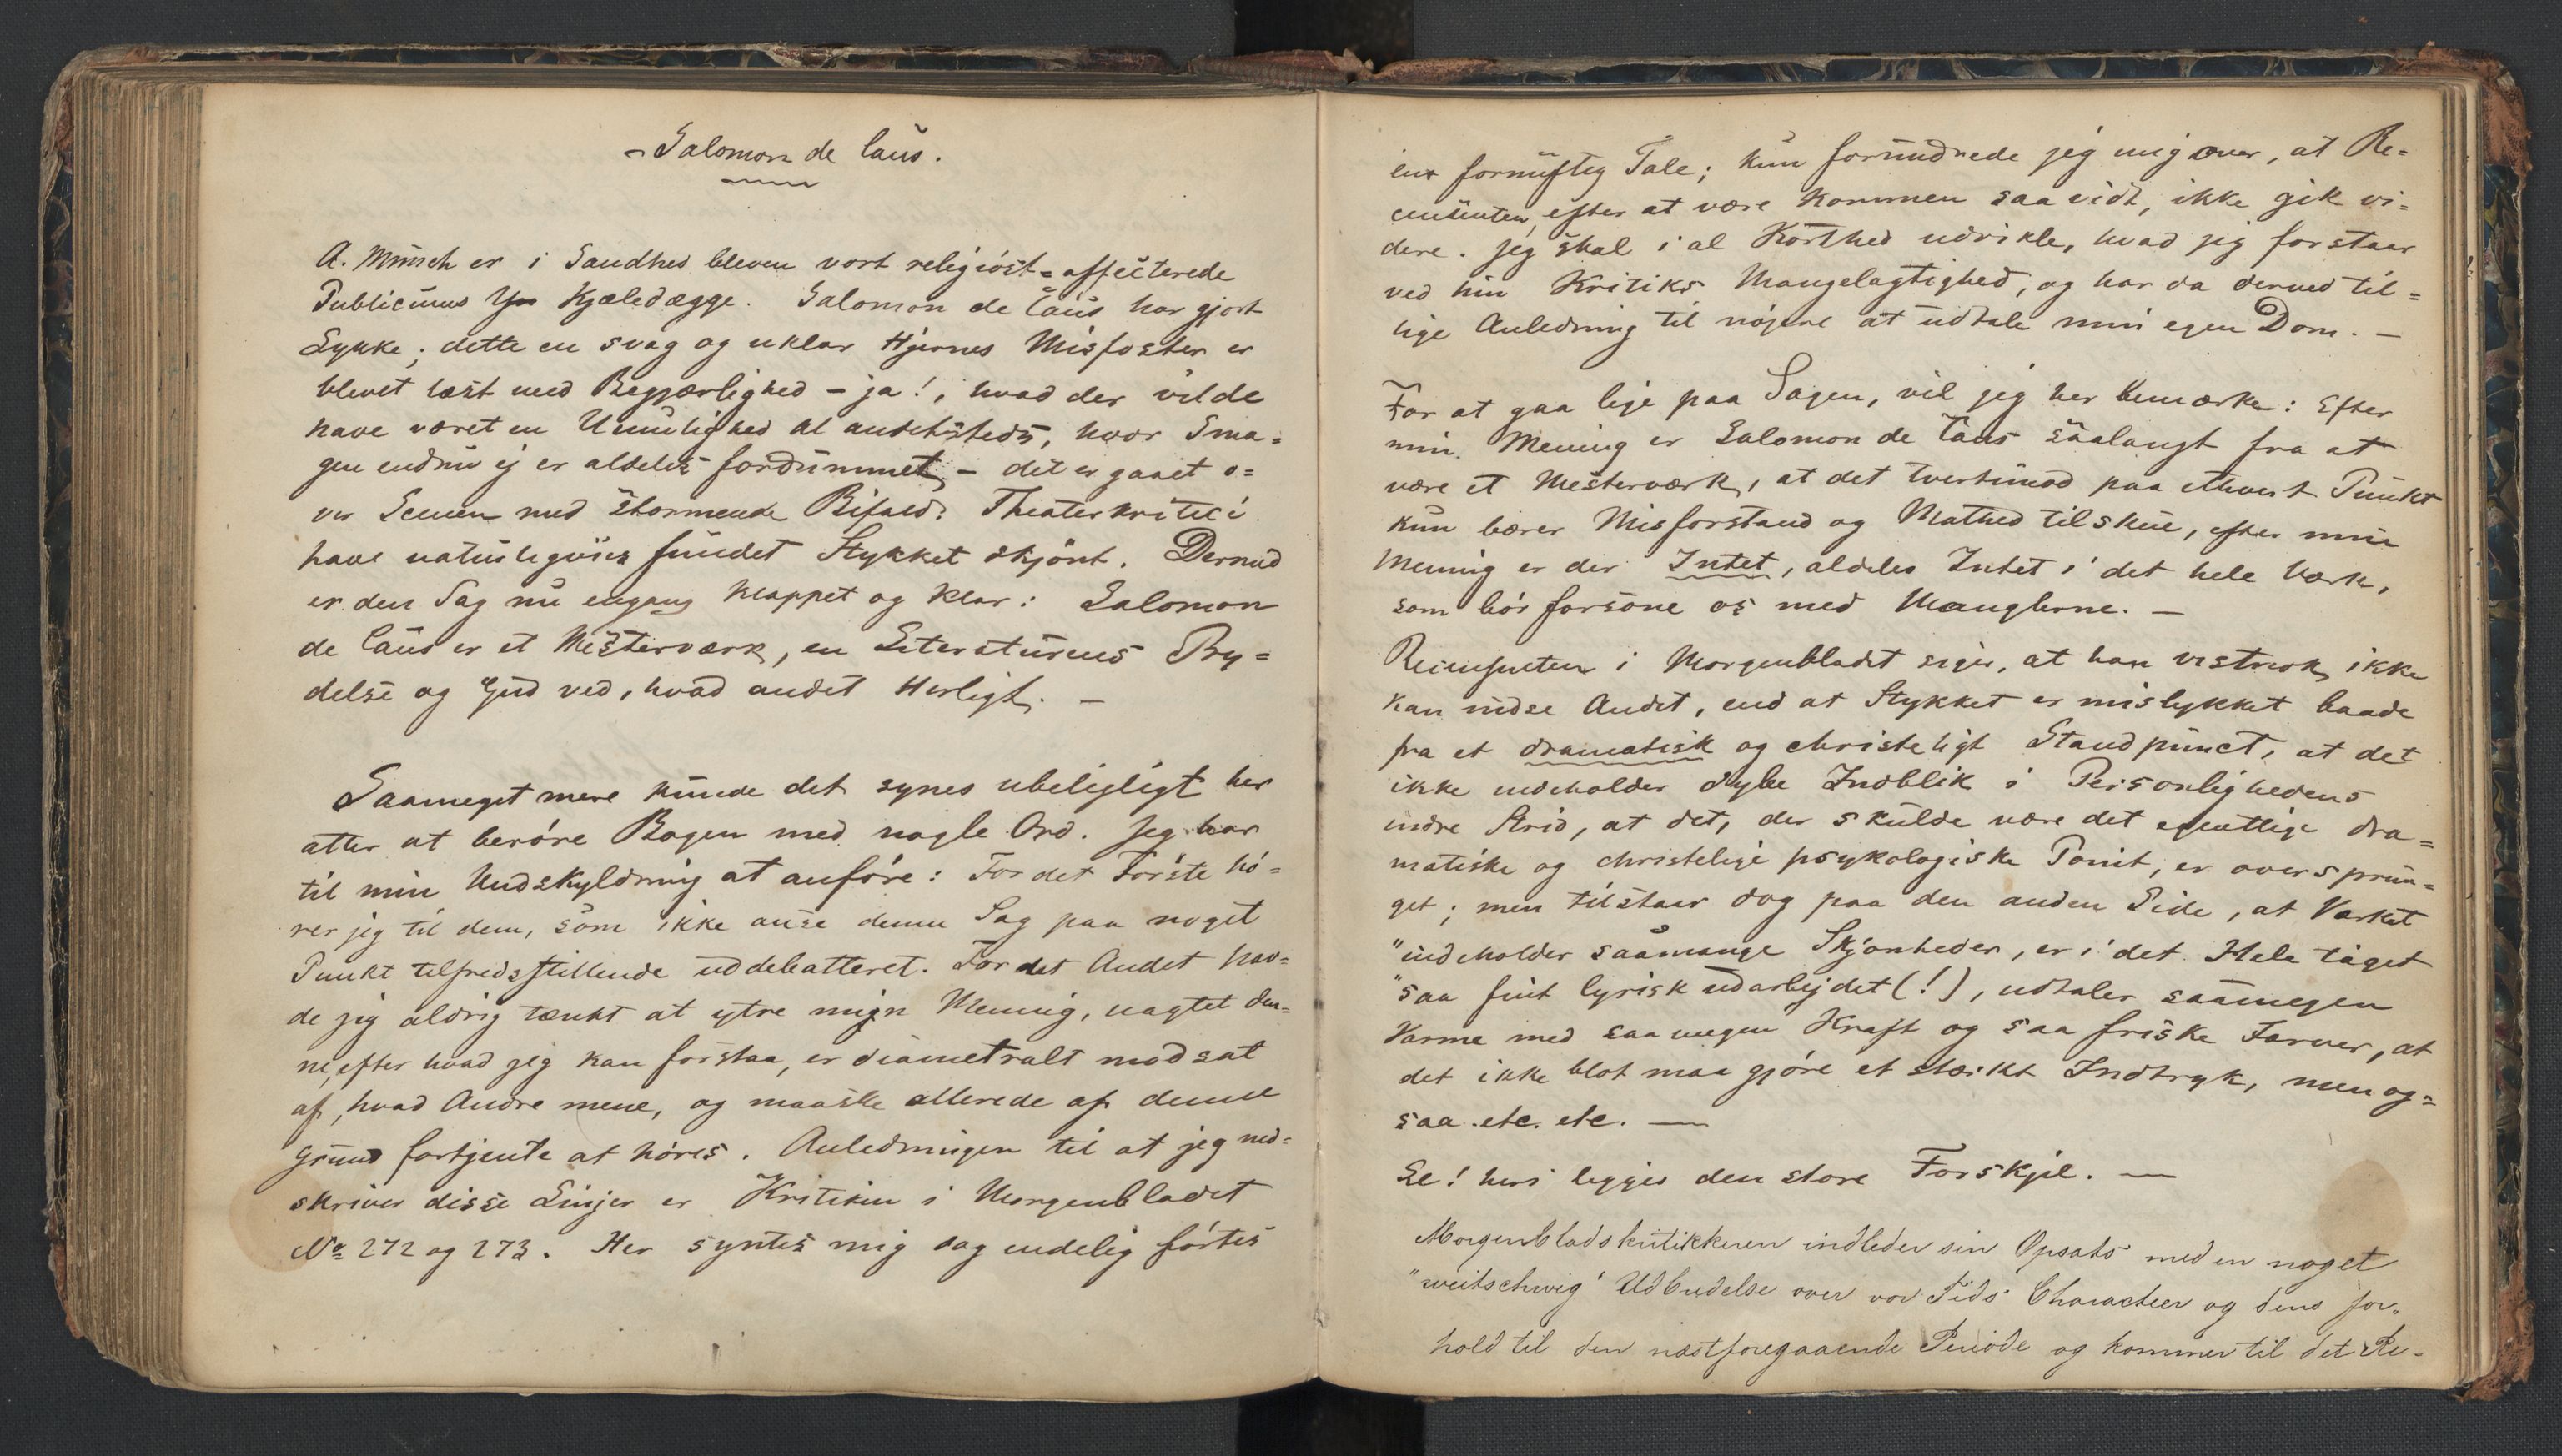 Salomon de Caus.
A. Munch er i Sandhed bleven vort religiøst-affecterede
Publicums Kjæledægge. Salomon de Caus har gjort
Lykke; dette en svag og uklar Hjernes Misfoster er
blevet læst med Begjærlighed – ja!, hvad der vilde
have været en Umulighed al andetsteds, hvor Sma=
gen endnu ej er aldeles fordummet, – det er gaaet o=
ver Scenen med stormende Bifald. Theaterkritici
have naturligviis fundet Stykket skjønt. Dermed
er den Sag nu engang klappet og klar: Salomon
de Caus er et Mesterværk, en Literaturens Pry=
delse og Gud ved, hvad andet Herligt. –
Saameget mere kunde det synes ubelejligt her
atter at berøre Bogen med nogle Ord. Jeg har
til min Undskyldning at anføre: For det Første hø=
rer jeg til dem, som ikke anse denne Sag paa noget
Punkt tilfredsstillende uddebatteret. For det Andet hav=
de jeg aldrig tænkt at ytre min Mening, uagtet den=
ne, efter hvad jeg kan forstaa, er diametralt modsat
af, hvad Andre mene, og maaske allerede af denne
Grund fortjente at høres. Anledningen til at jeg ned=
skriver disse Linjer er Kritiken i Morgenbladet
No 272 og 273. Her syntes mig dog endelig førtes
en fornuftig Tale; kun forundrede jeg mig over, at Re=
censenten, efter at være kommen saavidt, ikke gik vi=
dere. Jeg skal i al Korthed udvikle, hvad jeg forstaar
ved hin Kritiks Mangelagtighed, og har da derved til=
lige Anledning til nøjere at udtale min egen Dom. –
For at gaa lige paa Sagen, vil jeg her bemærke: Efter
min Mening er Salomon de Caus saalangt fra at
være et Mesterværk, at det tvertimod paa ethvert Punkt
kun bærer Misforstand og Mathed tilskue, efter min
Mening er der Intet, aldeles Intet i det hele Værk,
som bør forsone os med Manglerne. –
Recensenten i Morgenbladet siger, at han vistnok ikke
kan indse Andet, end at Stykket er mislykket baade
fra et dramatisk og christeligt Standpunct, at det
ikke indeholder dybe Indblik i Personlighedens
indre Strid, at det, der skulde være det egentlige dra=
matiske og christelige psykologiske Point, er oversprun=
get; men tilstaar dog paa den anden Side, at Værket
"indeholder saamange Skjønheder, er i det Hele taget
"saa fint lyrisk udarbejdet (!), udtaler saamegen
Varme med saa megen Kraft og saa friske Farver, at
det ikke blot maa gjøre et stærkt Indtryk, men og=
saa etc. etc. —
Se! heri ligger den store Forskjel. —
Morgenbladskritikkeren indleder sin Opsats med en noget
"weitschweig" Udbredelse over vor Tids Characteer og dens for=
hold til den næstforegaaende Periode og kommer til det Re-